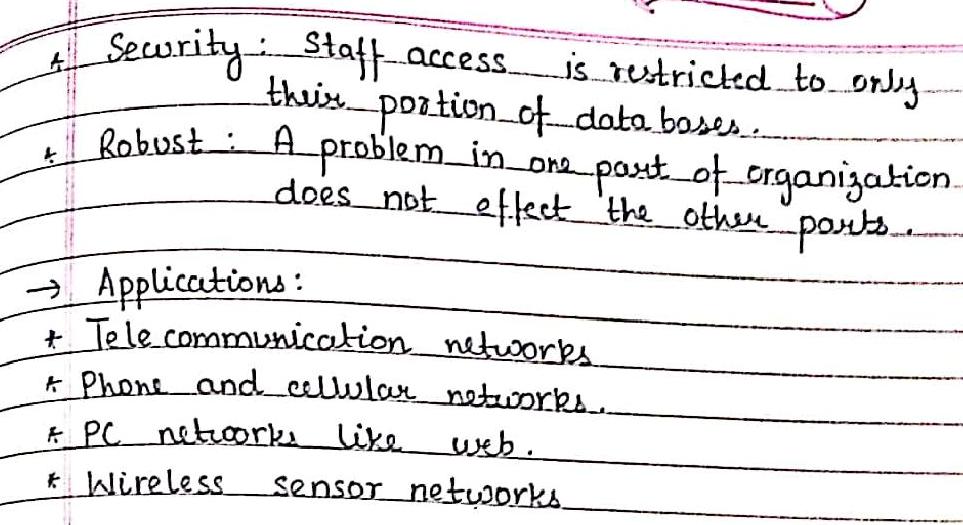 * Security : Staff access is restricted to only
their portion of data bases.
* Robust : A problem in one part of organization
does not effect the other parts.
→ Applications :
* Tele communication networks
* Phone and cellular networks.
* PC networks like web.
* Wireless sensor networks